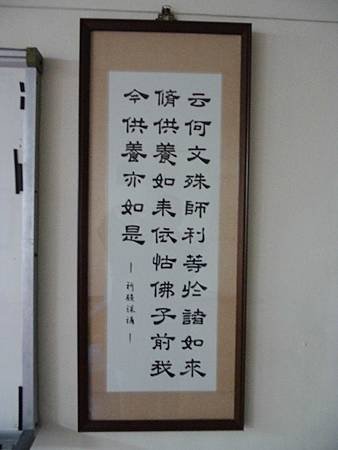 云何文殊師利等於諸如來
脩供養如来依怙佛子前我
今供養亦如是
—祈願